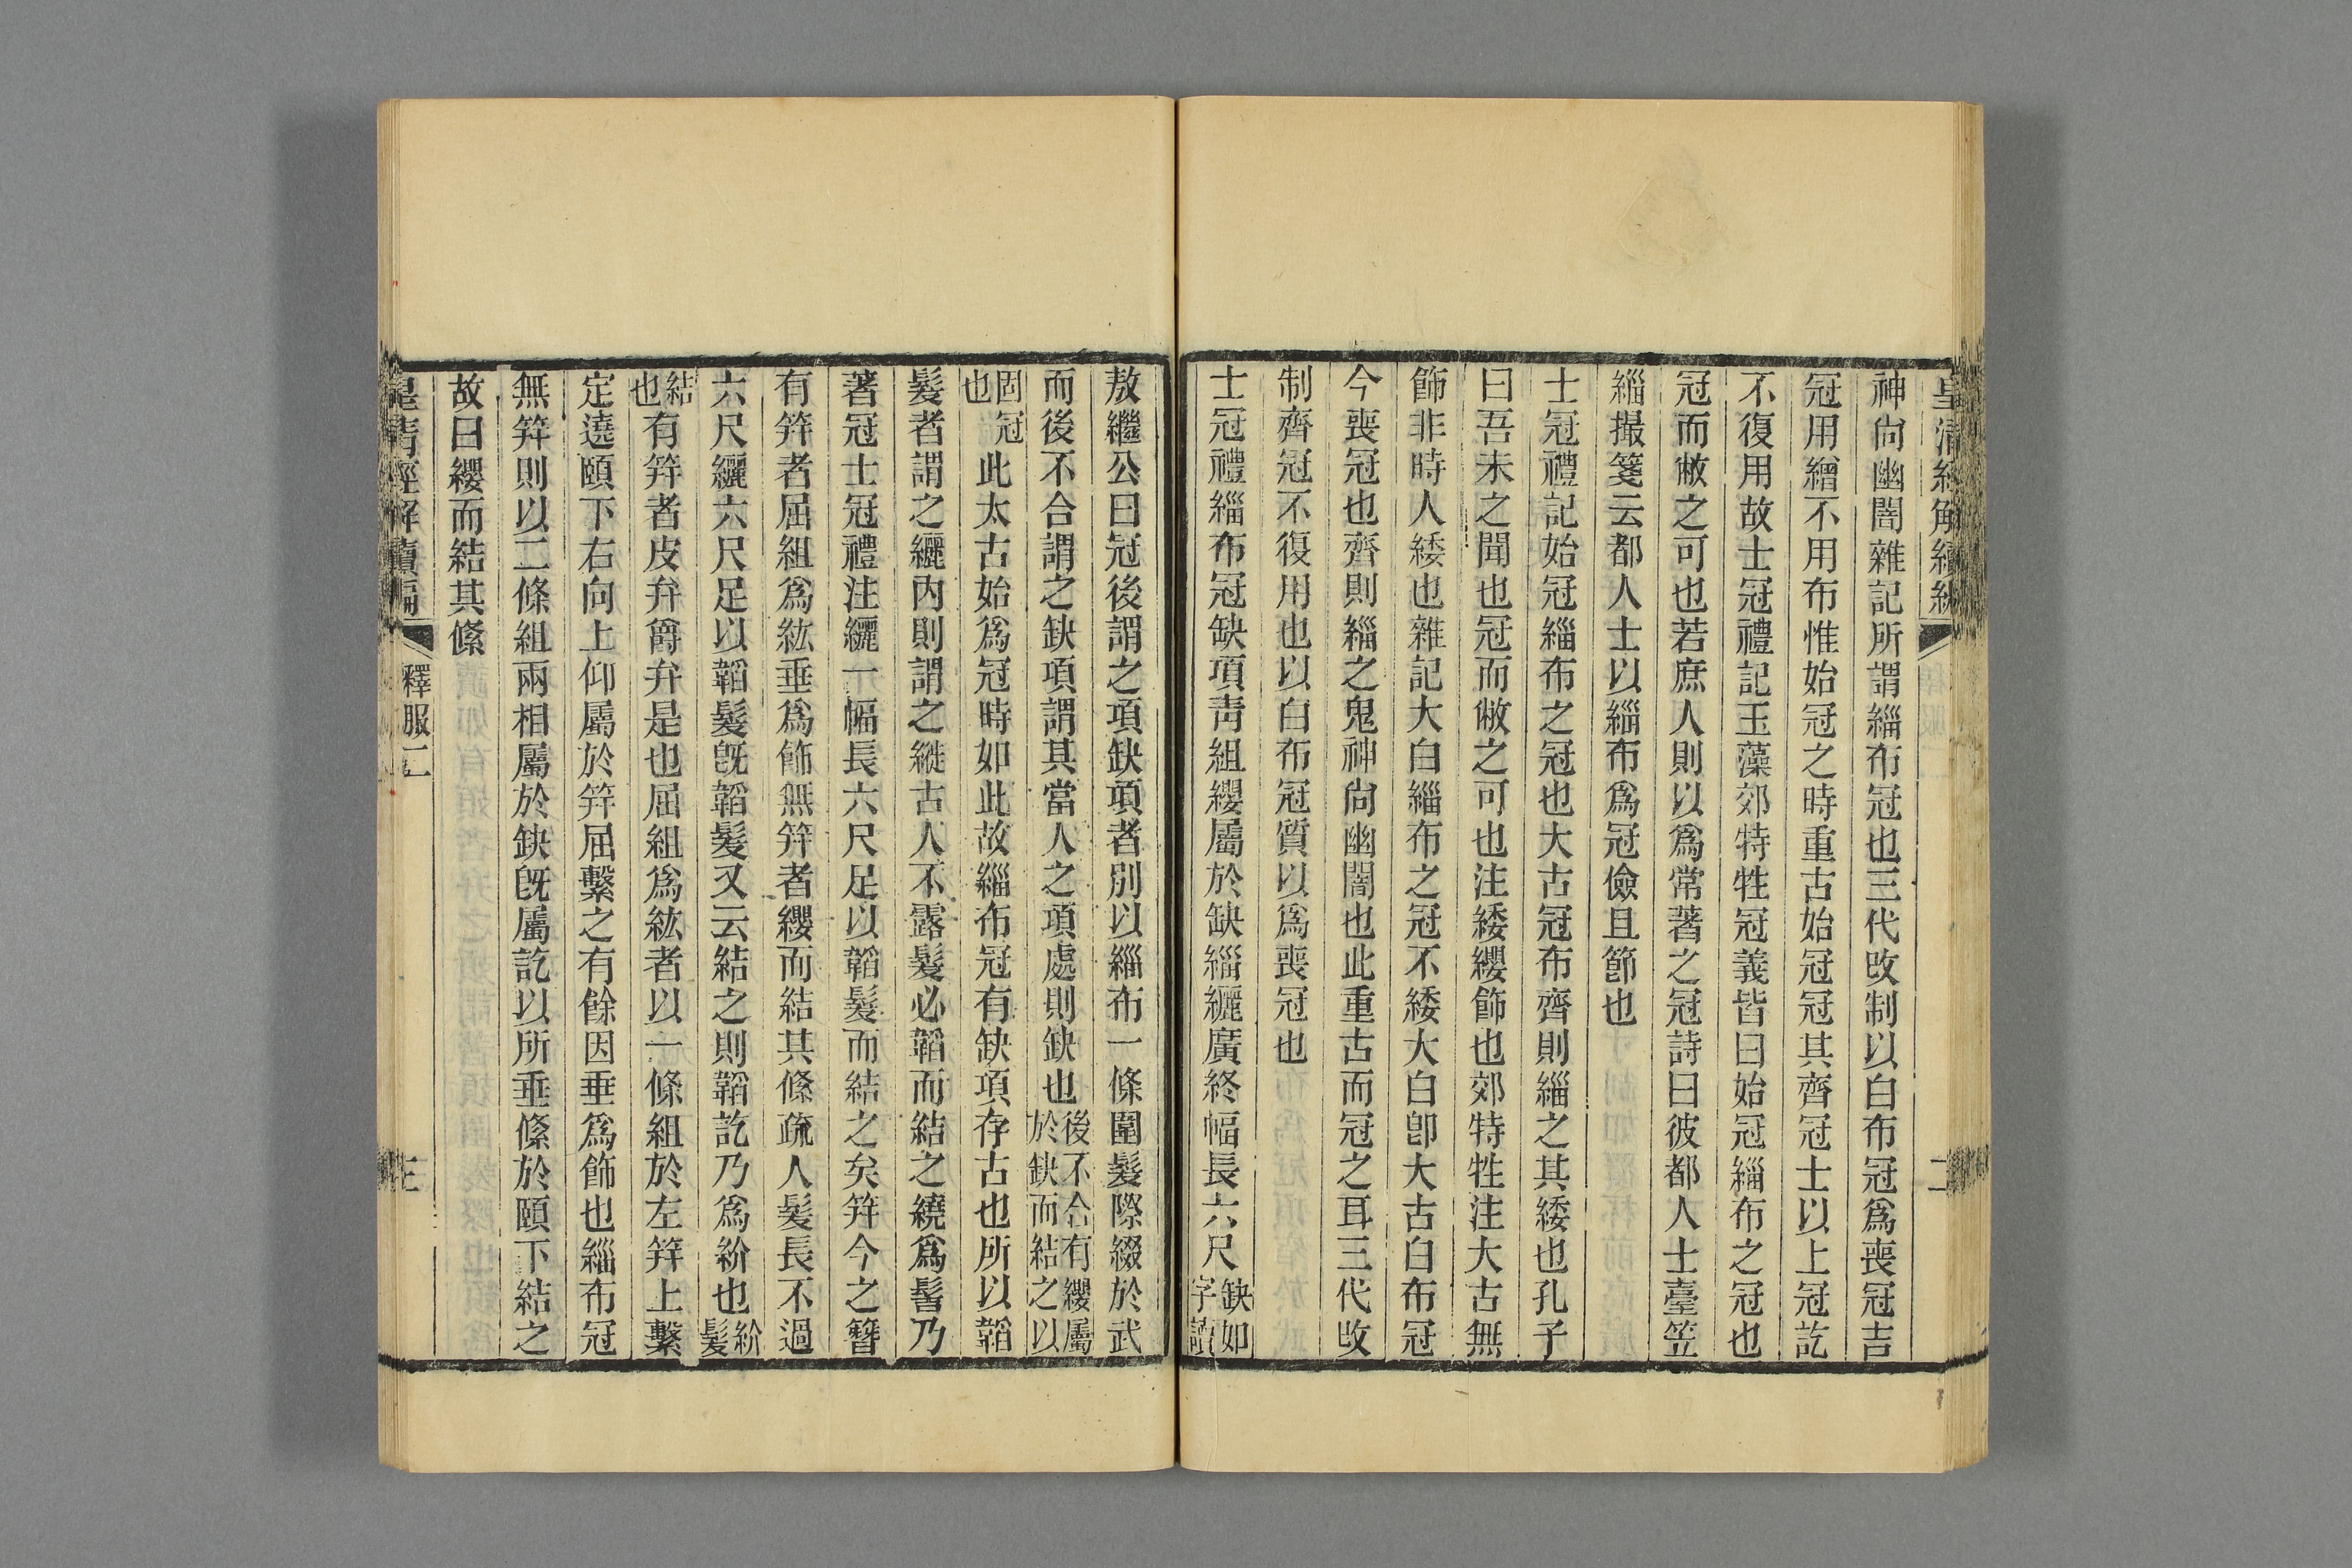 神尙幽闇雜記所謂緇布冠也三代改制以白布冠爲喪冠吉
冠用繒不用布惟始冠之時重古始冠冠其齊冠士以上冠訖
不復用故士冠禮記玉藻郊特牲冠義皆曰始冠緇布之冠也
冠而敝之可也若庶人則以爲常著之冠詩曰彼都人士臺笠
緇撮箋云都人士以緇布爲冠儉且節也
士冠禮記始冠緇布之冠也大古冠布齊則緇之其緌也孔子
曰吾未之聞也冠而敝之可也注緌纓飾也郊特牲注大古無
飾非時人緌也雜記大白緇布之冠不緌大白卽大古白布冠
今喪冠也齊則緇之鬼神尙幽闇也此重古而冠之耳三代改
制齊冠不復用也以白布冠質以爲喪冠也
士冠禮緇布冠缺項靑組纓屬於缺緇纚廣終幅長六尺缺如字讀
敖繼公曰冠後謂之項缺項者別以緇布一條圍髮際綴於武
而後不合謂之缺項謂其當人之項處則缺也後不合有纓屬於缺而結之以
固冠也此太古始爲冠時如此故緇布冠有缺項存古也所以韜
髮者謂之纚內則謂之縰古人不露髮必韜而結之繞爲髻乃
著冠士冠禮注纚一幅長六尺足以韜髮而結之矣笄今之簪
有笄者屈組爲紘垂爲飾無笄者纓而結其絛疏人髮長不過
六尺纚六尺足以韜髮旣韜髮又云結之則韜訖乃爲紒也紒髮
結也有笄者皮弁爵弁是也屈組爲紘者以一條組於左笄上繫
定遶頤下右向上仰屬於笄屈繫之有餘因垂爲飾也緇布冠
無笄則以二條組兩相屬於缺旣屬訖以所垂絛於頤下結之
故曰纓而結其絛
皇淸經解續編
釋服二